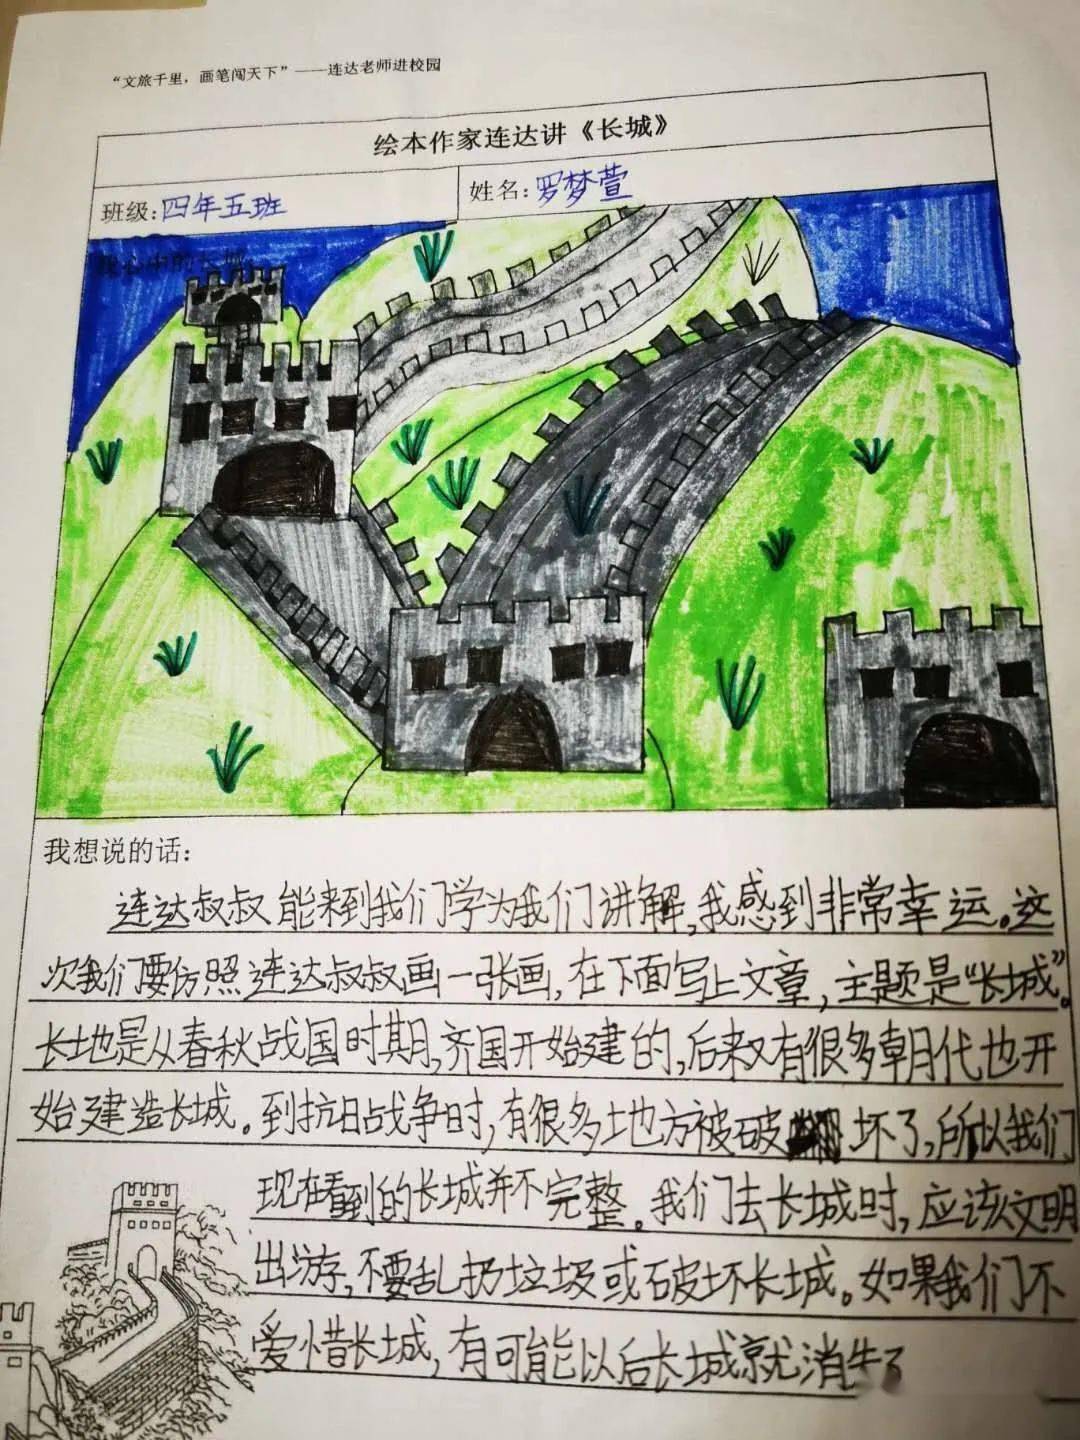 “文旅千里，画笔闯天下”——连达老师进校园
绘本作家连达讲《长城》
班级：四年五班
姓名：罗梦萱
我心中的长城
我想说的话：
连达叔叔能来到我们学为我们讲解，我感到非常幸运。这
次我们要仿照连达叔叔画一张画，在下面写上文章，主题是“长城”。
长地是从春秋战国时期，齐国开始建的，后来又有很多朝代也开
始建造长城。到抗日战争时，有很多地方被破坏了，所以我们
现在看到的长城并不完整。我们去长城时，应该文明
出游，不要乱扔垃圾或破坏长城。如果我们不
爱惜长城，有可能以后长城就消失了